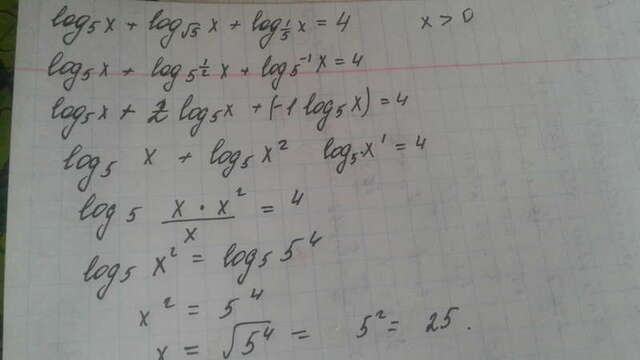 log₅x + log_√5 x + log_1/5 x = 4 x > 0
log₅x + log_5^1/2 x + log_5^-1 x = 4
log₅x + 2 log₅x + (-1 log₅x) = 4
log₅ x + log₅ x² log₅ x¹ = 4
log₅ (x · x²)/x = 4
log₅ x² = log₅ 5⁴
x² = 5⁴
x = √5⁴ = 5² = 25.